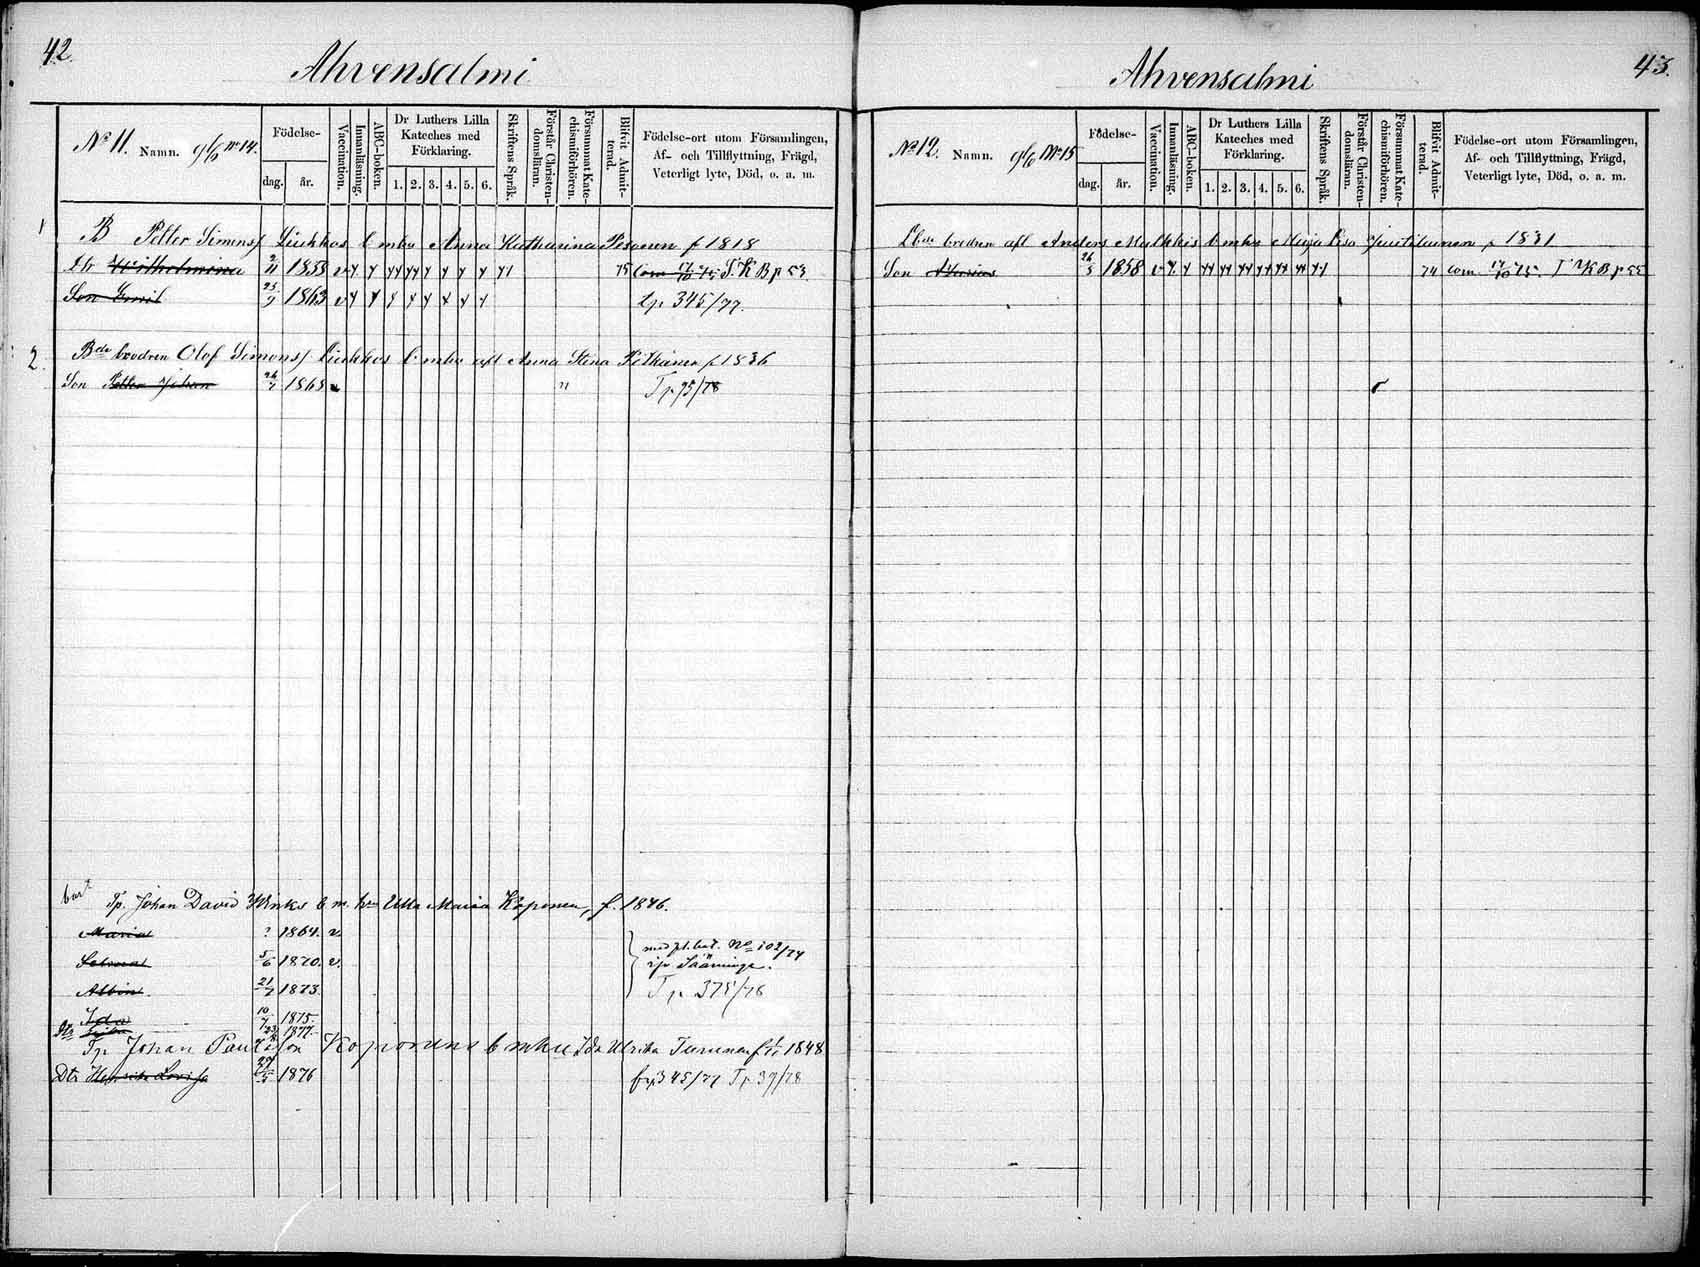 42.
Ahvensalmi
No 11. Namn. No 14.
Födelse-
dag.
år.
Vaccination.
Innanläsning.
ABC-boken.
Dr Luthers Lilla
Kateches med
Förklaring.
1. 2. 3. 4. 5. 6.
Skriftens Språk.
Förstår Christen-
domsläran.
Försummat Kate-
chismiförhören.
Blifvit Admit-
terad.
Födelse-ort utom Församlingen,
Af- och Tillflyttning, Frägd,
Veterligt lyte, Död, o. a. m.
1
B Petter Simonss. Liukkos b mhu Anna Katharina Pesonen f 1818
Dtr Wilhelmina 2/11 1858 v 75 com 17/10 75 S.K.B p 53
Son Emil 25/7 1863 v tp 345/77.
2.
Bde brodren Olof Simonss. Liukkos b mhu afl Anna Stina Pitkänen f 1836
Son Petter Johan 24/7 1863 v " Tp 95/78
Tp. Johan David b m. hu Ulla Maria Koponen, f. 1846.
Maria ? 1864. v.
Selma 5/6 1870. v. med fl.bet. No 102/74
Albin. 21/7 1873. Tp 375/78
Ida 10/7 1875.
1877.
Tp Johan Paulsson Koponens b mhu Ida Ulrika Turunen f 1/11 1848
Dtr Henrika Lovisa 1876 345/77 Tp 39/78
43.
Ahvensalmi
No 12. Namn. No 15
Födelse-
dag.
år.
Vaccination.
Innanläsning.
ABC-boken.
Dr Luthers Lilla
Kateches med
Förklaring.
1. 2. 3. 4. 5. 6.
Skriftens Språk.
Förstår Christen-
domsläran.
Försummat Kate-
chismiförhören.
Blifvit Admit-
terad.
Födelse-ort utom Församlingen,
Af- och Tillflyttning, Frägd,
Veterligt lyte, Död, o. a. m.
brodren afl Anders Malkkis b mhu Maja Lisa Juutilainen f 1831
Son 26/3 1858 v 74 com 17/10 75 K B p 55